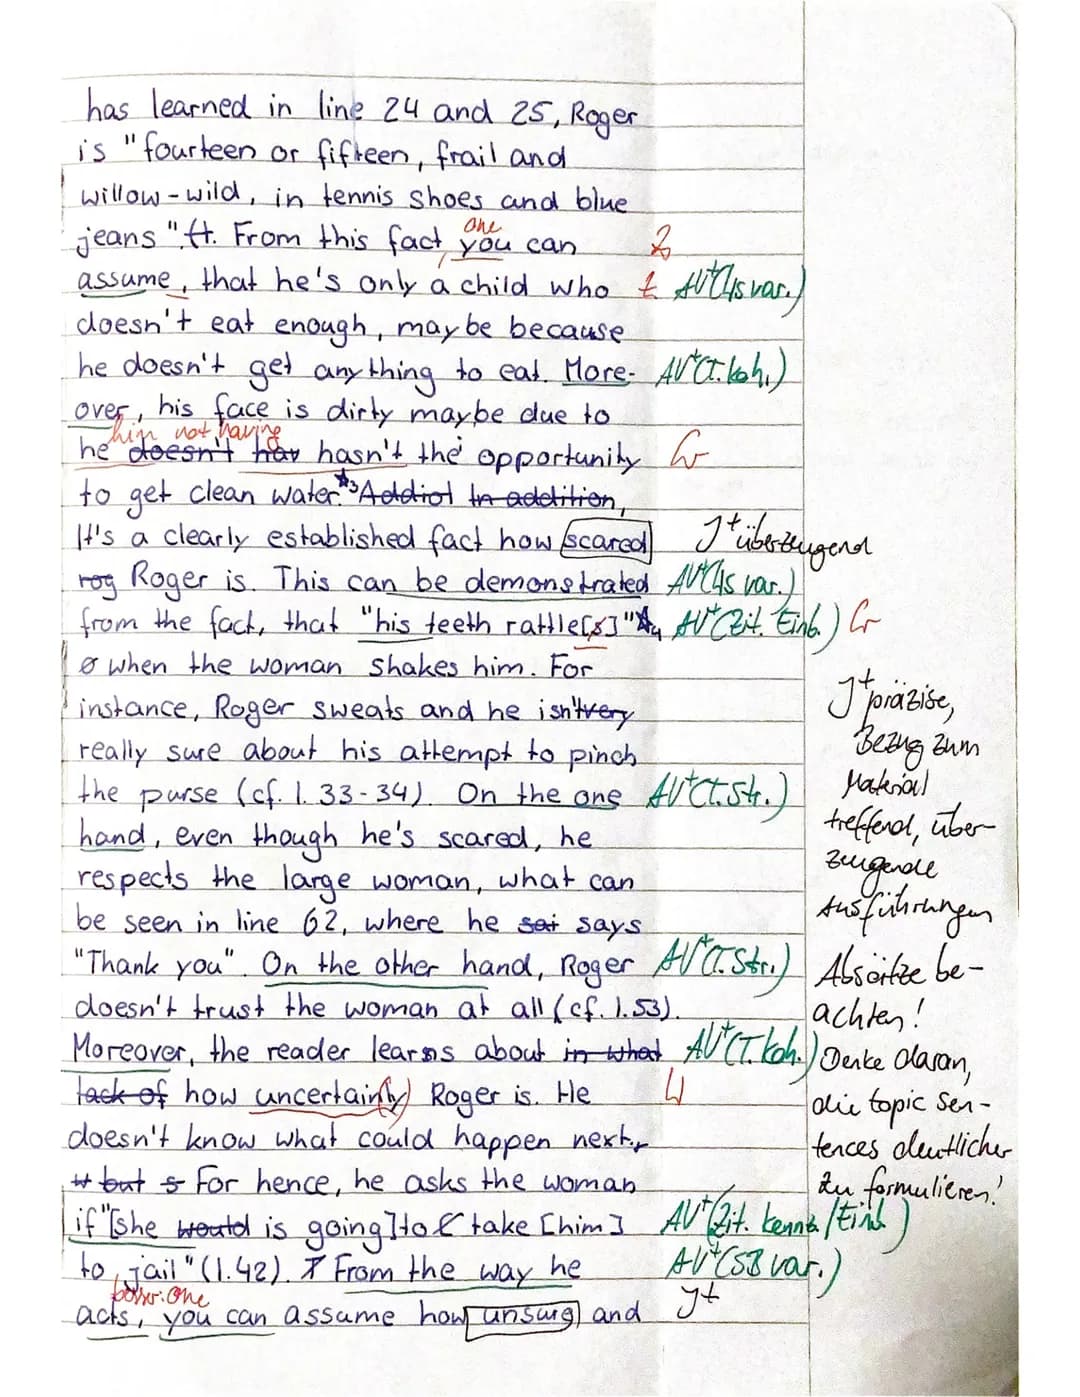 has learned in line 24 and 25, Roger
is "fourteen or fifteen, frail and
willow-wild, in tennis shoes and blue
one
jeans". From this fact, you can Z
assume, that he's only a child who Z AV+(As var.)
doesn't eat enough, maybe because
he doesn't get anything to eat. More- AV+(T.koh.)
over, his face is dirty maybe due to
him not having
he doesn't hav hasn't the opportunity Gr
to get clean water.*3 Addiot In addition,
It's a clearly established fact how scared J+ überzeugend
rog Roger is. This can be demonstrated AV+(As var.)
from the fact, that "his teeth rattle[s]"*4 AV+(Zit. Einb.) Gr
when the woman shakes him. For
instance, Roger sweats and he isn't very
really sure about his attempt to pinch
the purse (cf. l. 33-34). On the one AV+(T.Str.)
hand, even though he's scared, he
respects the large woman, what can
be seen in line 62, where he sai says
J+ präzise,
Bezug zum
Material
treffend, über-
zeugende
Ausführungen
"Thank you". On the other hand, Roger AV+(T.Str.)
doesn't trust the woman at all (cf. l.53).
Moreover, the reader learns about in what AV+(T.koh.)
lack of how uncertain(ly) Roger is. He W
doesn't know what could happen next,
but s For hence, he asks the woman
if "[she would is going] to take [him] AV+(Zit. kennt./Einb.)
to jail" (l.42). From the way he AV+(SB var.)
besser: one
acts, you can assume how unsure and J+
Absätze be-
achten!
Denke daran,
die topic sen-
tences deutlicher
zu formulieren!